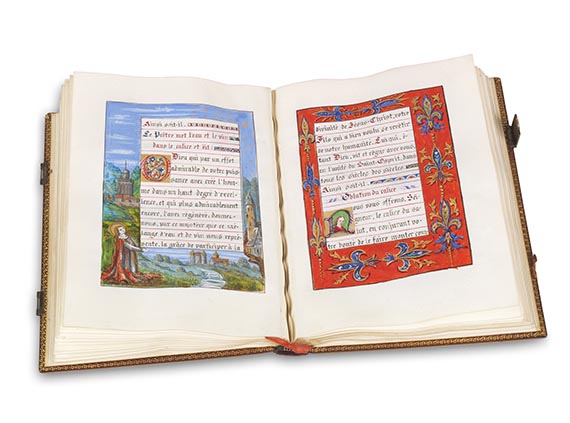 Ainsi soit-il.
Le Prêtre met l'eau et le vin
dans le calice et dit
O Dieu qui par un effet
admirable de votre puis
sance avez créé l'hom-
me dans un haut degré d'excel-
lence, et qui plus admirablement
encore, l'avez régénéré: donnez-
nous, par ce mystère que ce mé-
lange d'eau et de vin nous repré-
sente, la grâce de participer à la
divinité de Jésus-Christ, votre
Fils qui a bien voulu se revêtir
de notre humanité. Lui qui, é-
tant Dieu, vit et règne avec vous
dans l'unité du Saint-Esprit, dans
tous les siècles des siècles.
Ainsi soit-il.
Oblation du calice
Nous vous offrons, Sei-
gneur, le calice du sa-
lut, en conjurant vo-
tre bonté de le faire monter com